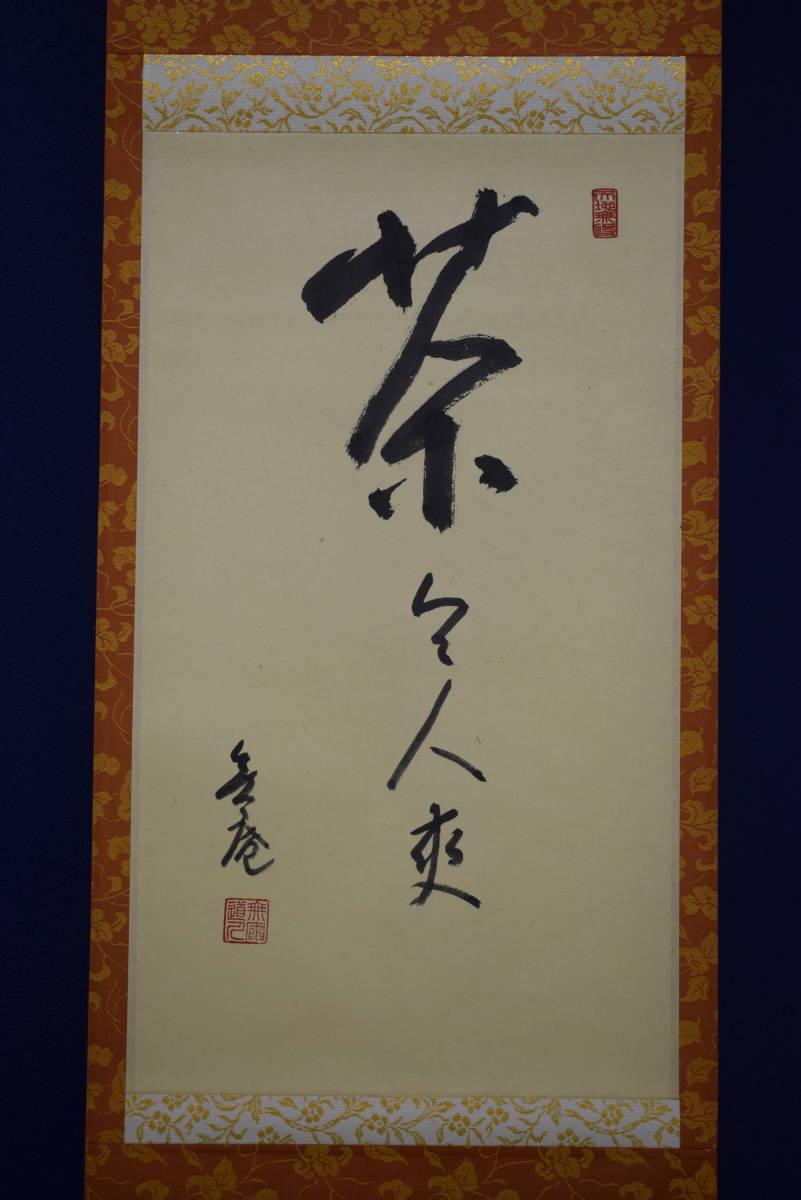 茶令人爽
無庵